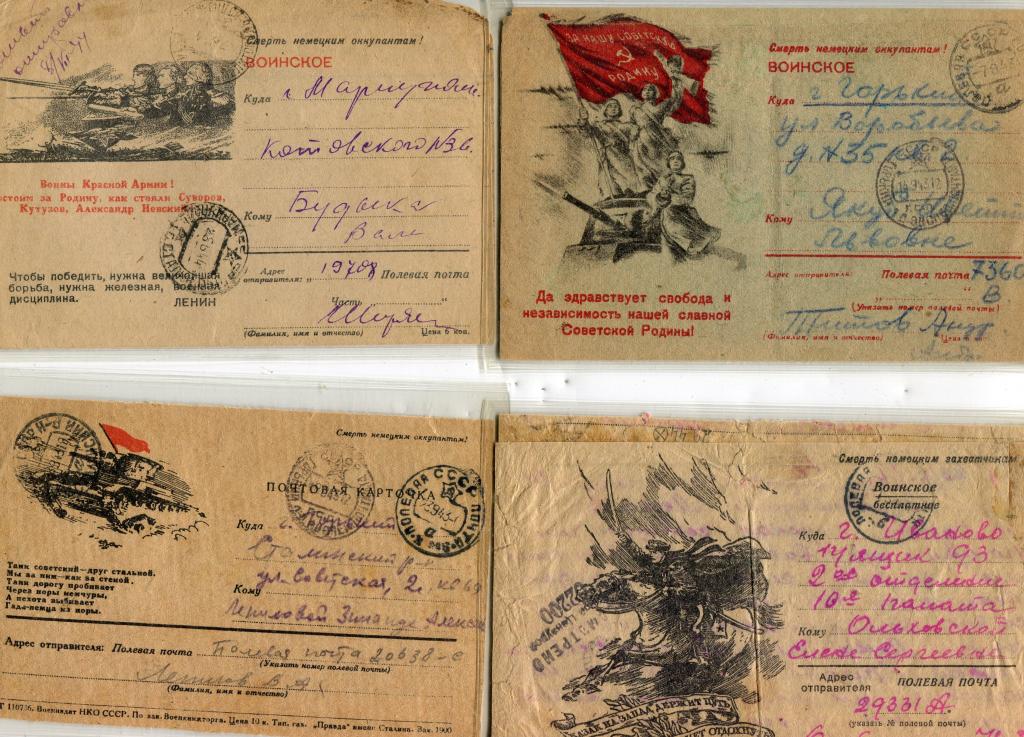 Смерть немецким оккупантам!
ВОИНСКОЕ
Куда г. Мариуполь
Котовского №36.
Воины Красной Армии!
стоим за Родину, как стояли Суворов,
Кутузов, Александр Невский
Кому Будыка
Вале
Чтобы победить, нужна величайшая
борьба, нужна железная, военная
дисциплина. ЛЕНИН
Адрес отправителя: 19708 Полевая почта
Часть
(Фамилия, имя и отчество) Цена 6 коп.
ЗА НАШУ СОВЕТСКУЮ
РОДИНУ
Смерть немецким оккупантам!
ВОИНСКОЕ
Куда г. Горький
ул Воробьева
д. №35 кв. 2
Кому
Львовне
Адрес отправителя: Полевая почта 7360
В
(Указать номер полевой почты)
Титов
(Фамилия, имя и отчество)
Да здравствует свобода и
независимость нашей славной
Советской Родины!
Смерть немецким оккупантам!
ПОЧТОВАЯ КАРТОЧКА
ПОЛЕВАЯ ПОЧТА
СССР
Куда г. Горький
Сталинский р-н
ул. Советская, 2. кв 69
Кому
Лепиловой Зинаиде
Танк советский—друг стальной.
Мы за ним—как за стеной.
Танк дорогу пробивает
Через норы немчуры,
А пехота выбивает
Гада-немца из норы.
Адрес отправителя: Полевая почта Полевая почта 20638-с
(Указать номер полевой почты)
Лепилов В.А.
(Фамилия, имя и отчество)
Т 110736. Воениздат НКО СССР. По зак. Военкниготорга. Цена 10 к. Тип. газ. „Правда" имени Сталина. Зак. 1900
Смерть немецким захватчикам
Воинское
бесплатное
Куда г. Иваново
п/ящик 93
2ое отделение
10-я палата
Кому Ольховской
Елене Сергеевне
Адрес
отправителя ПОЛЕВАЯ ПОЧТА
29331 А.
(указать № полевой почты)
КАЗАК НА ЗАПАД ДЕРЖИТ ПУТЬ